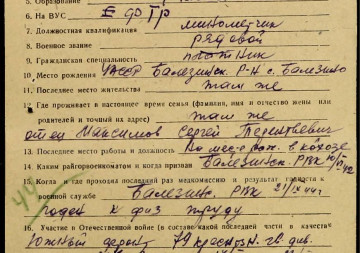 5. Образование
6. На ВУС
7. Должностная квалификация минометчик
8. Военное звание рядовой
9. Гражданская специальность плотник
10. Место рождения УАССР Балезинск. р-н с. Балезино
11. Последнее место жительства там же
12. Где проживает в настоящее время семья (фамилия, имя и отчество жены или
родителей и точный их адрес) там же
отец Максимов Сергей Терентьевич
13. Последнее место работы и должность По мес. рож. в колхозе
14. Каким райгорвоенкоматом и когда призван Балезинск. РВК
15. Когда и где проходил последний раз медкомиссию и результат годности к
военной службе Балезинск. РВК
годен к физ труду
16. Участие в Отечественной войне (в составе какой последней части и в качестве
Южный фронт 79 краснозн. гв. див.